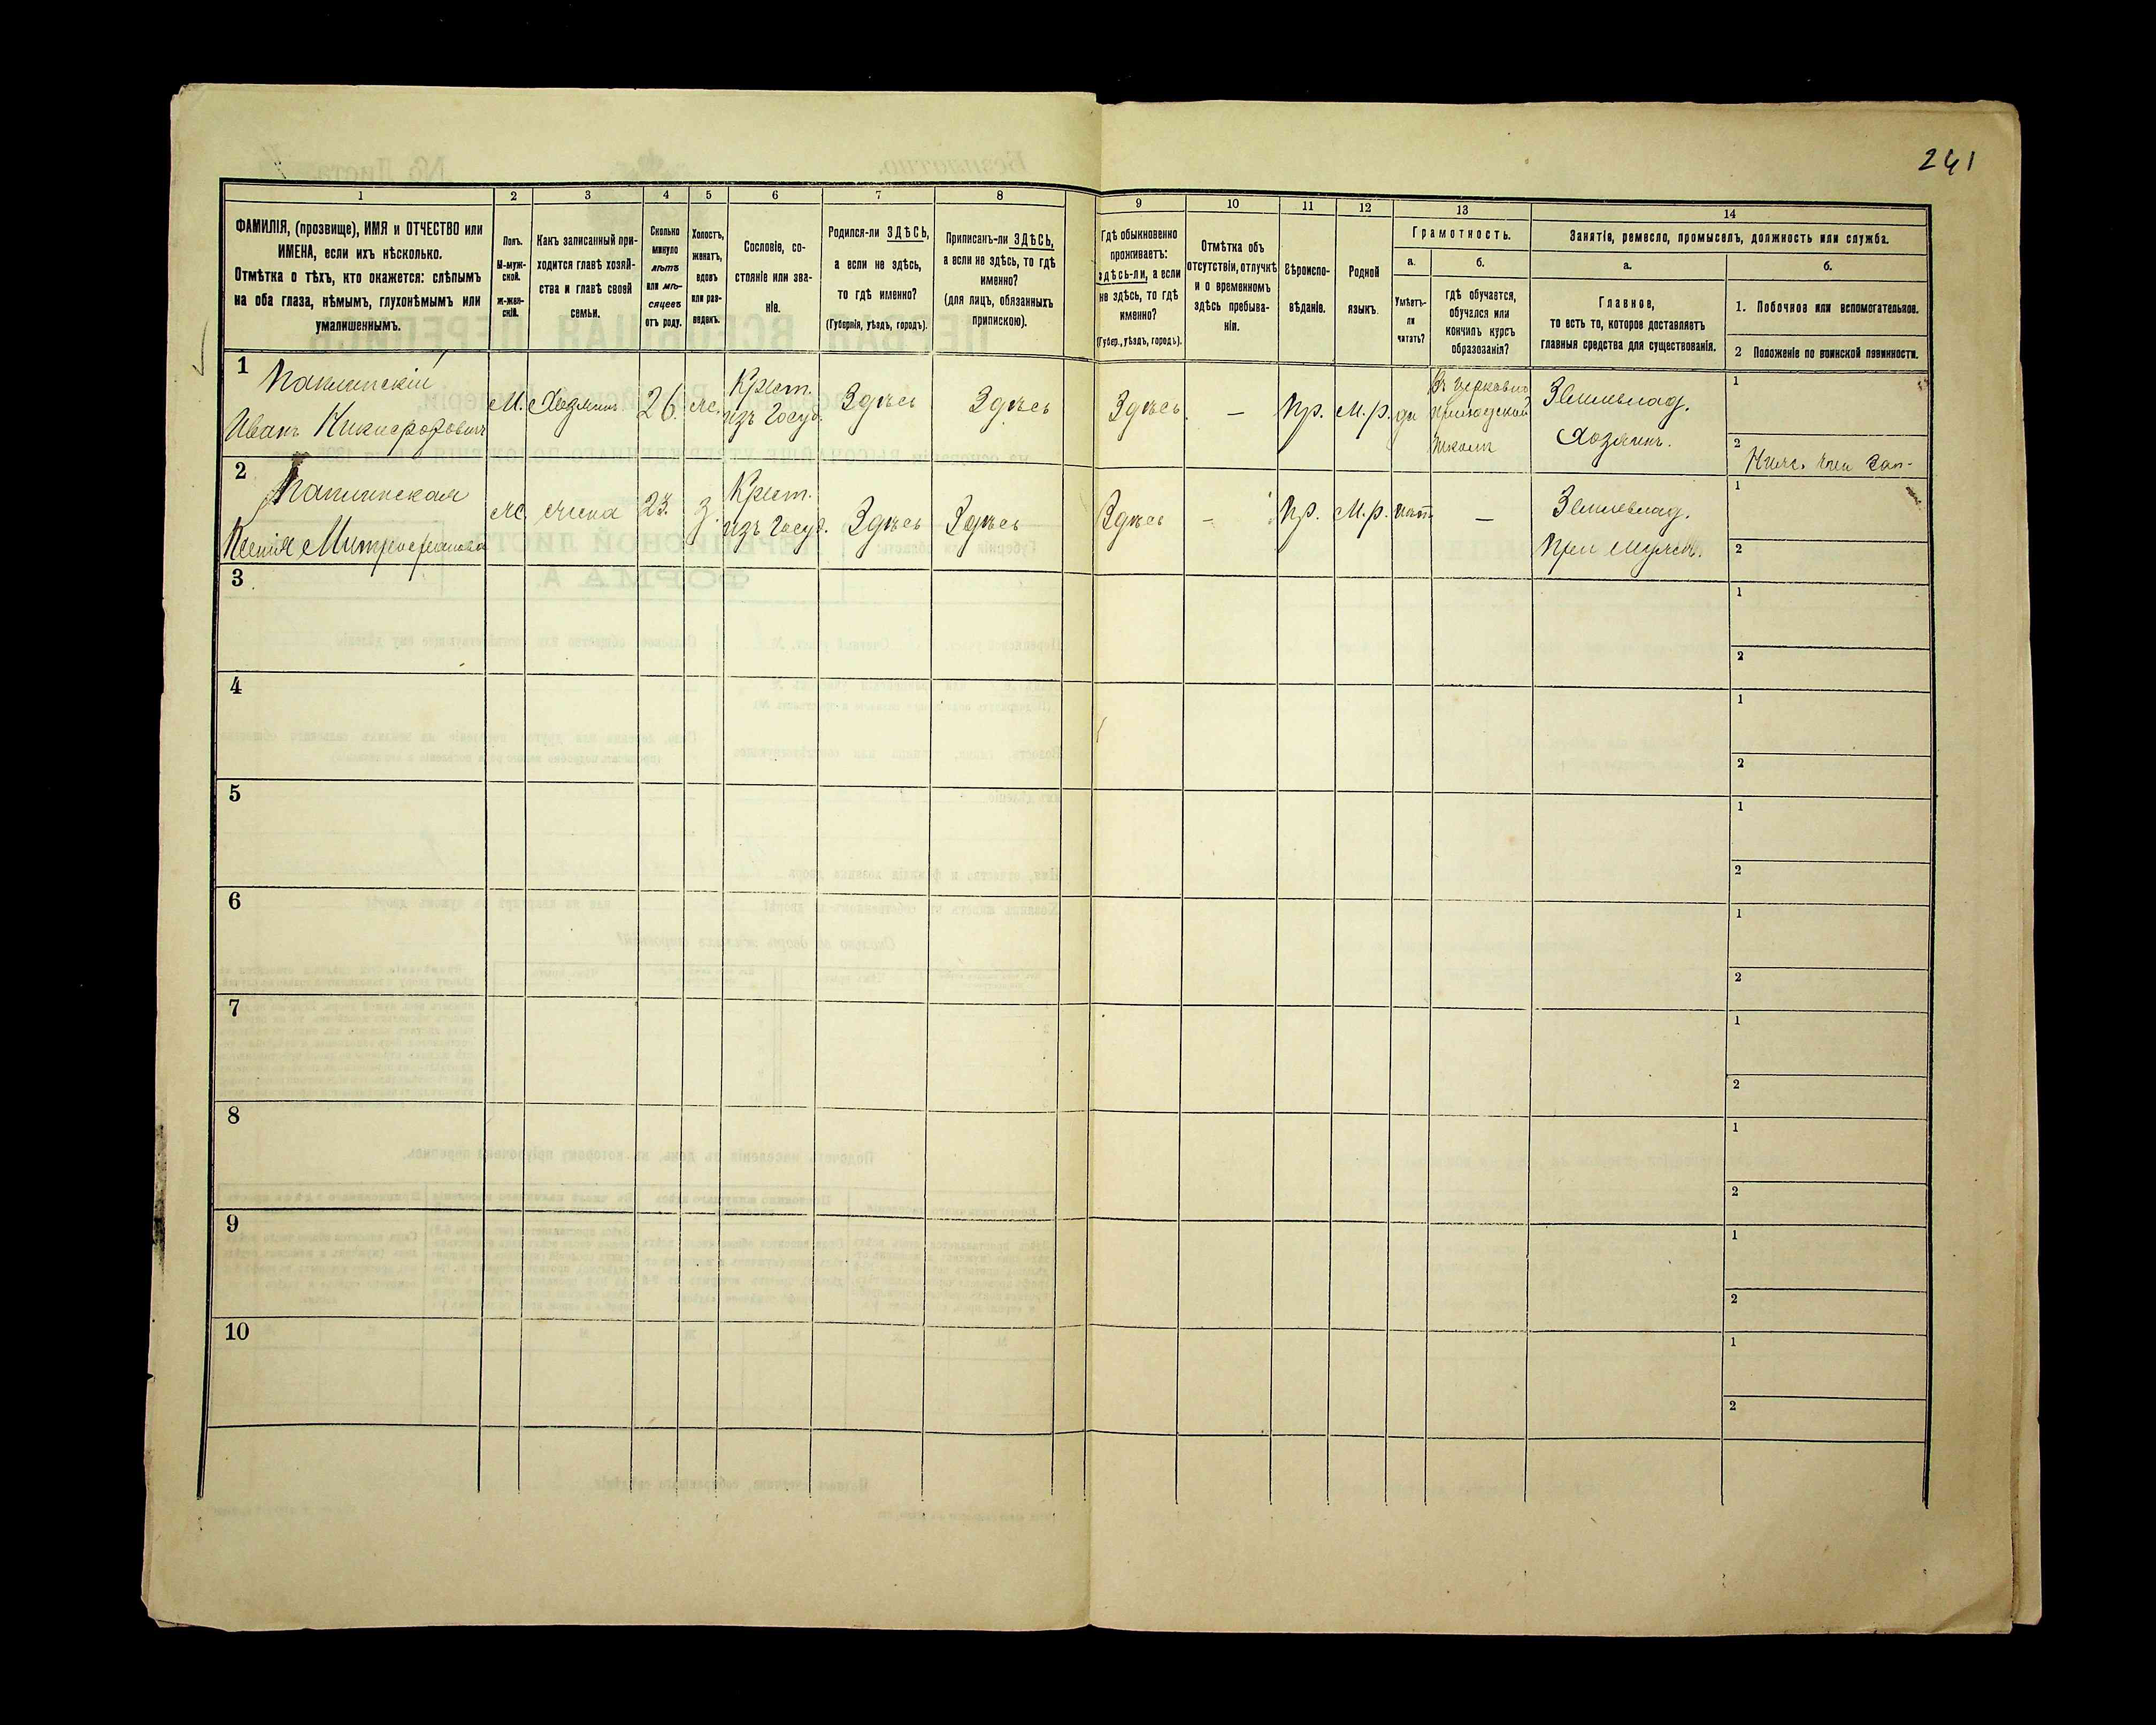 241
1 2 3 4 5 6 7 8 9 10 11 12 13 14
ФАМИЛІЯ, (прозвище), ИМЯ и ОТЧЕСТВО или
ИМЕНА, если ихъ нѣсколько.
Отмѣтка о тѣхъ, кто окажется: слѣпымъ
на оба глаза, нѣмымъ, глухонѣмымъ или
умалишеннымъ.
Полъ.
М-муж-
ской.
Ж-жен-
скій.
Какъ записанный при-
ходится главѣ хозяй-
ства и главѣ своей
семьи.
Сколько
минуло
лѣтъ
или мѣ-
сяцевъ
отъ роду.
Холостъ,
женатъ,
вдовъ
или раз-
веденъ.
Сословіе, со-
стояніе или зва-
ніе.
Родился-ли ЗДѢСЬ,
а если не здѣсь,
то гдѣ именно?
(Губернія, уѣздъ, городъ).
Приписанъ-ли ЗДѢСЬ,
а если не здѣсь, то гдѣ
именно?
(для лицъ, обязанныхъ
припискою).
Гдѣ обыкновенно
проживаетъ:
здѣсь-ли, а если
не здѣсь, то гдѣ
именно?
(Губер., уѣздъ, городъ).
Отмѣтка объ
отсутствіи, отлучкѣ
и о временномъ
здѣсь пребыва-
ніи.
Вѣроиспо-
вѣданіе.
Родной
языкъ.
Грамотность.
а.
Умѣетъ-
ли
читать?
б.
гдѣ обучается,
обучался или
кончилъ курсъ
образованія?
Занятіе, ремесло, промыселъ, должность или служба.
а.
Главное,
то есть то, которое доставляетъ
главныя средства для существованія.
б.
1. Побочное или вспомогательное.
2 Положеніе по воинской повинности.
1
Иванъ Никифоровичъ
М.
Хозяинъ
26
ж.
Крест.
изъ Госуд.
Здѣсь
Здѣсь
Здѣсь
—
Пр.
М.р.
да
Въ церковно
приходской
школѣ
Землевлад.
Хозяинъ.
1
2
Нижн. чин зап-
2
Ксенія Митрофановна
Ж.
жена
23.
з.
Крест.
изъ Госуд.
Здѣсь
Здѣсь
Здѣсь
—
Пр.
М.р.
нѣт.
—
Землевлад.
При мужѣ.
1
2
3
1
2
4
1
2
5
1
2
6
1
2
7
1
2
8
1
2
9
1
2
10
1
2